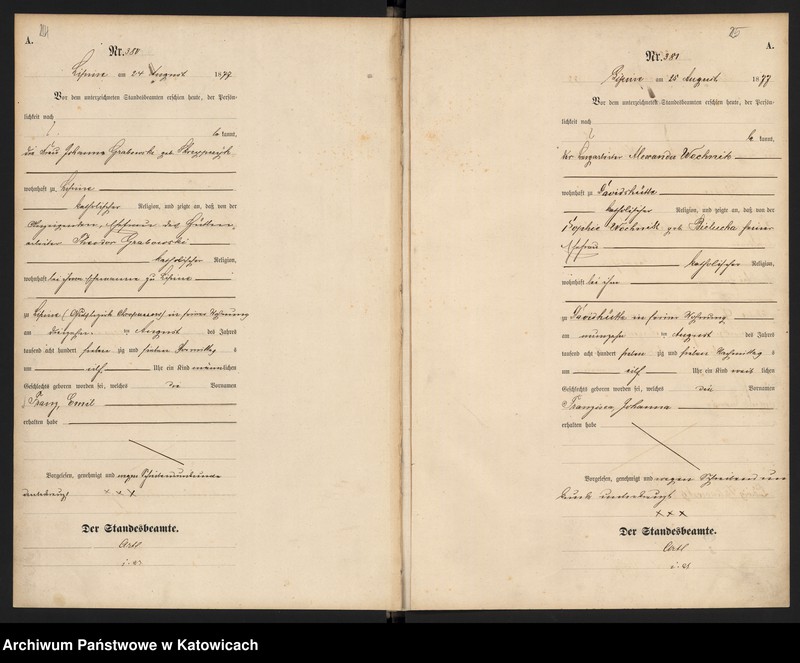 A.
Nr. 380
Lipine am 24 August 1877
Vor dem unterzeichneten Standesbeamten erschien heute, der Persön-
lichkeit nach
be kannt,
die Frau Johanna Grabowski geb
wohnhaft zu Lipine
katholischer Religion, und zeigte an, daß von der
Ehefrau des Hütten-
arbeiter Theodor Grabowski
katholischer Religion,
wohnhaft bei ihrem Ehemanne zu Lipine
zu Lipine in seiner Wohnung
am August des Jahres
tausend acht hundert sieben zig und sieben Vormittag s
um elf Uhr ein Kind männlichen
Geschlechts geboren worden sei, welches die Vornamen
Franz, Emil
erhalten habe
Vorgelesen, genehmigt und wegen Schreibensunkunde
unterkreuzt
x x x
Der Standesbeamte.
25
A.
Nr. 381
Lipine am 25 August 1877
Vor dem unterzeichneten Standesbeamten erschien heute, der Persön-
lichkeit nach
be kannt,
der Bergarbeiter Alexander Wochnik
wohnhaft zu Davidshütte
katholischer Religion, und zeigte an, daß von der
Sophie Wochnik geb. Bielecka seiner
Ehefrau
katholischer Religion,
wohnhaft bei ihm
zu Davidshütte in seiner Wohnung
am August des Jahres
tausend acht hundert sieben zig und sieben Nachmittag s
um elf Uhr ein Kind weib lichen
Geschlechts geboren worden sei, welches die Vornamen
Franziska, Johanna
erhalten habe
Vorgelesen, genehmigt und wegen Schreibens un
kunde unterkreuzt
x x x
Der Standesbeamte.
Archiwum Państwowe w Katowicach